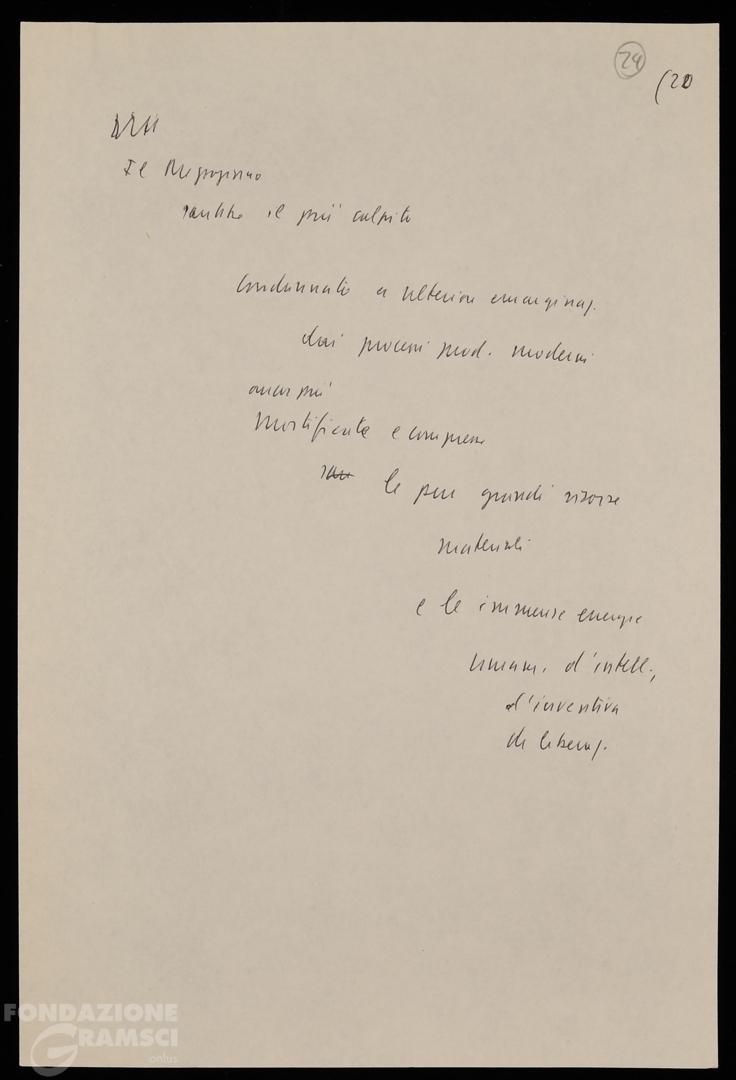 24
(20
Il Mezzogiorno
sarebbe il più colpito
Condannato a ulteriore emarginaz.
dai processi prod. moderni
ancor più
Mortificate e compresse
le pur grandi risorse
materiali
e le immense energie
umane, d'intell.,
d'inventiva
di liberaz.
FONDAZIONE
GRAMSCI
onlus